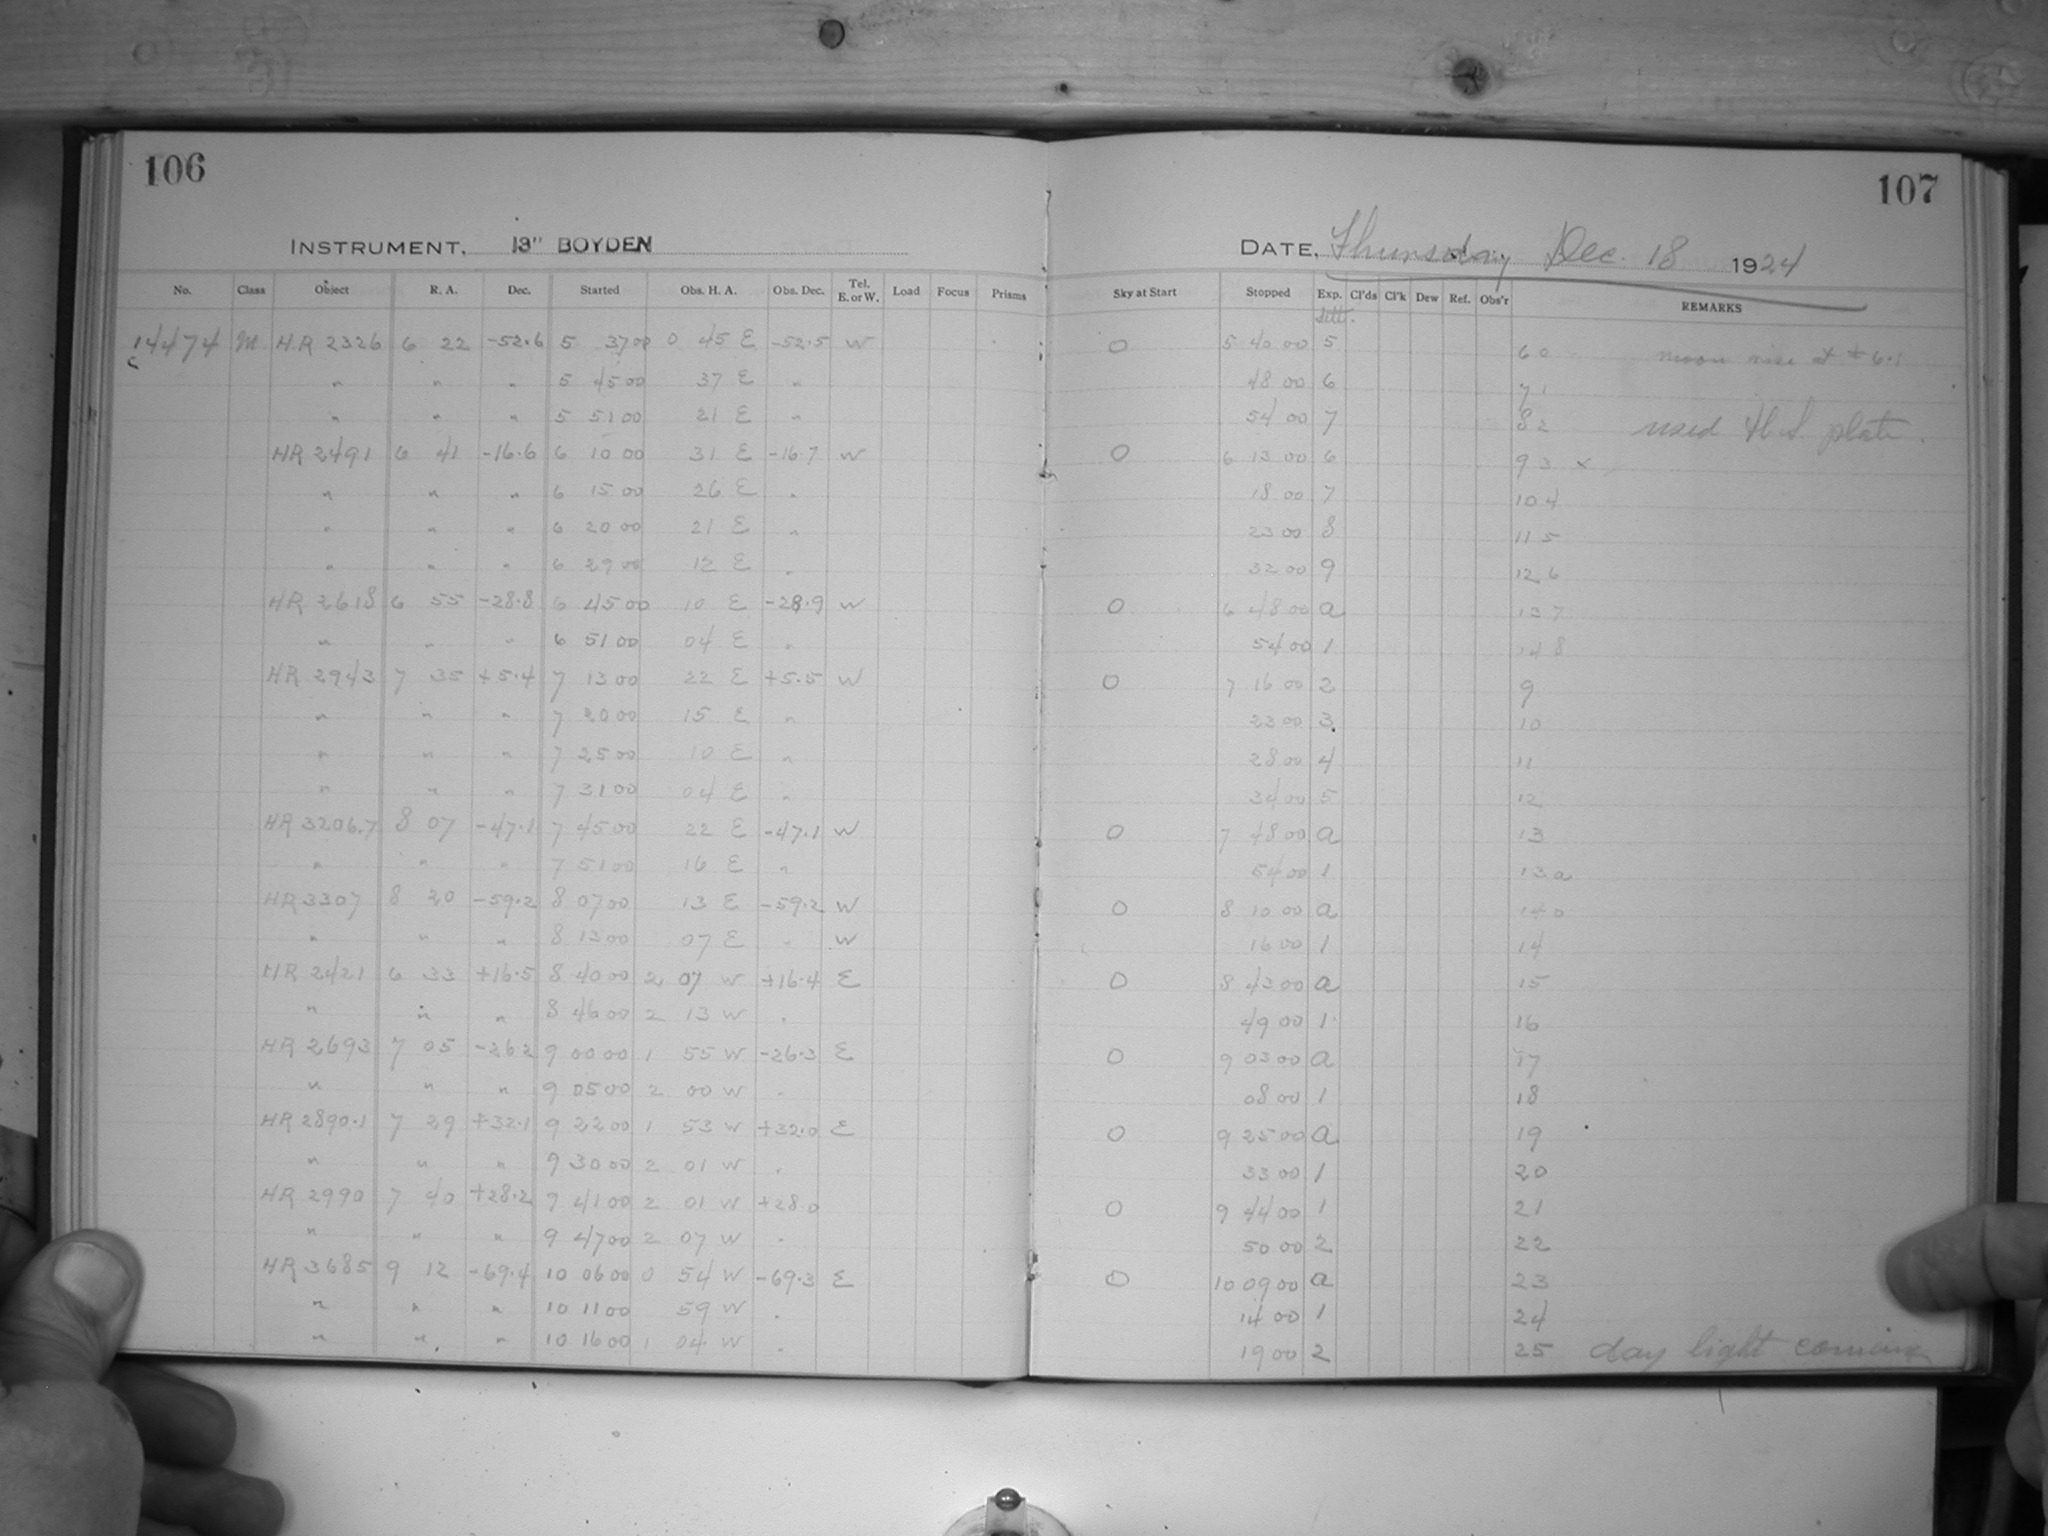 106
INSTRUMENT, 13" BOYDEN
No. Class Object R. A. Dec. Started Obs. H. A. Obs. Dec. Tel. E. or W. Load Focus Prisms
14474 M HR 2326 6 22 -52.6 5 37 00 0 45 E -52.5 W
c " " " 5 45 00 37 E "
" " " 5 51 00 21 E "
HR 2491 6 41 -16.6 6 10 00 31 E -16.7 W
" " " 6 15 00 26 E "
" " " 6 20 00 21 E "
" " " 6 29 00 12 E "
HR 2618 6 55 -28.8 6 45 00 10 E -28.9 W
" " " 6 51 00 04 E "
HR 2943 7 35 +5.4 7 13 00 22 E +5.5 W
" " " 7 20 00 15 E "
" " " 7 25 00 10 E "
" " " 7 31 00 04 E "
HR 3206.7 8 07 -47.1 7 45 00 22 E -47.1 W
" " " 7 51 00 16 E "
HR 3307 8 20 -59.2 8 07 00 13 E -59.2 W
" " " 8 13 00 07 E " W
HR 2421 6 33 +16.5 8 40 00 2 07 W +16.4 E
" " " 8 46 00 2 13 W "
HR 2693 7 05 -26.2 9 00 00 1 55 W -26.3 E
" " " 9 05 00 2 00 W "
HR 2890.1 7 29 +32.1 9 22 00 1 53 W +32.0 E
" " " 9 30 00 2 01 W "
HR 2990 7 40 +28.2 9 41 00 2 01 W +28.0
" " " 9 47 00 2 07 W "
HR 3685 9 12 -69.4 10 06 00 0 54 W -69.3 E
" " " 10 11 00 59 W "
" " " 10 16 00 1 04 W "
107
DATE, Thursday Dec. 18 1924
Sky at Start Stopped Exp. Cl'ds Cl'k Dew Ref. Obs'r REMARKS
0 5 40 00 5 60 moon rise at
48 00 6 71
54 00 7 82 used H.S. plate.
0 6 13 00 6 93 x
18 00 7 104
23 00 8 115
32 00 9 126
0 6 48 00 a 137
54 00 1 148
0 7 16 00 2 9
23 00 3 10
28 00 4 11
34 00 5 12
0 7 48 00 a 13
54 00 1 13a
0 8 10 00 a
16 00 1 14
0 8 43 00 a 15
49 00 1 16
0 9 03 00 a 17
08 00 1 18
0 9 25 00 a 19
33 00 1 20
0 9 44 00 1 21
50 00 2 22
0 10 09 00 a 23
14 00 1 24
19 00 2 25 day light coming